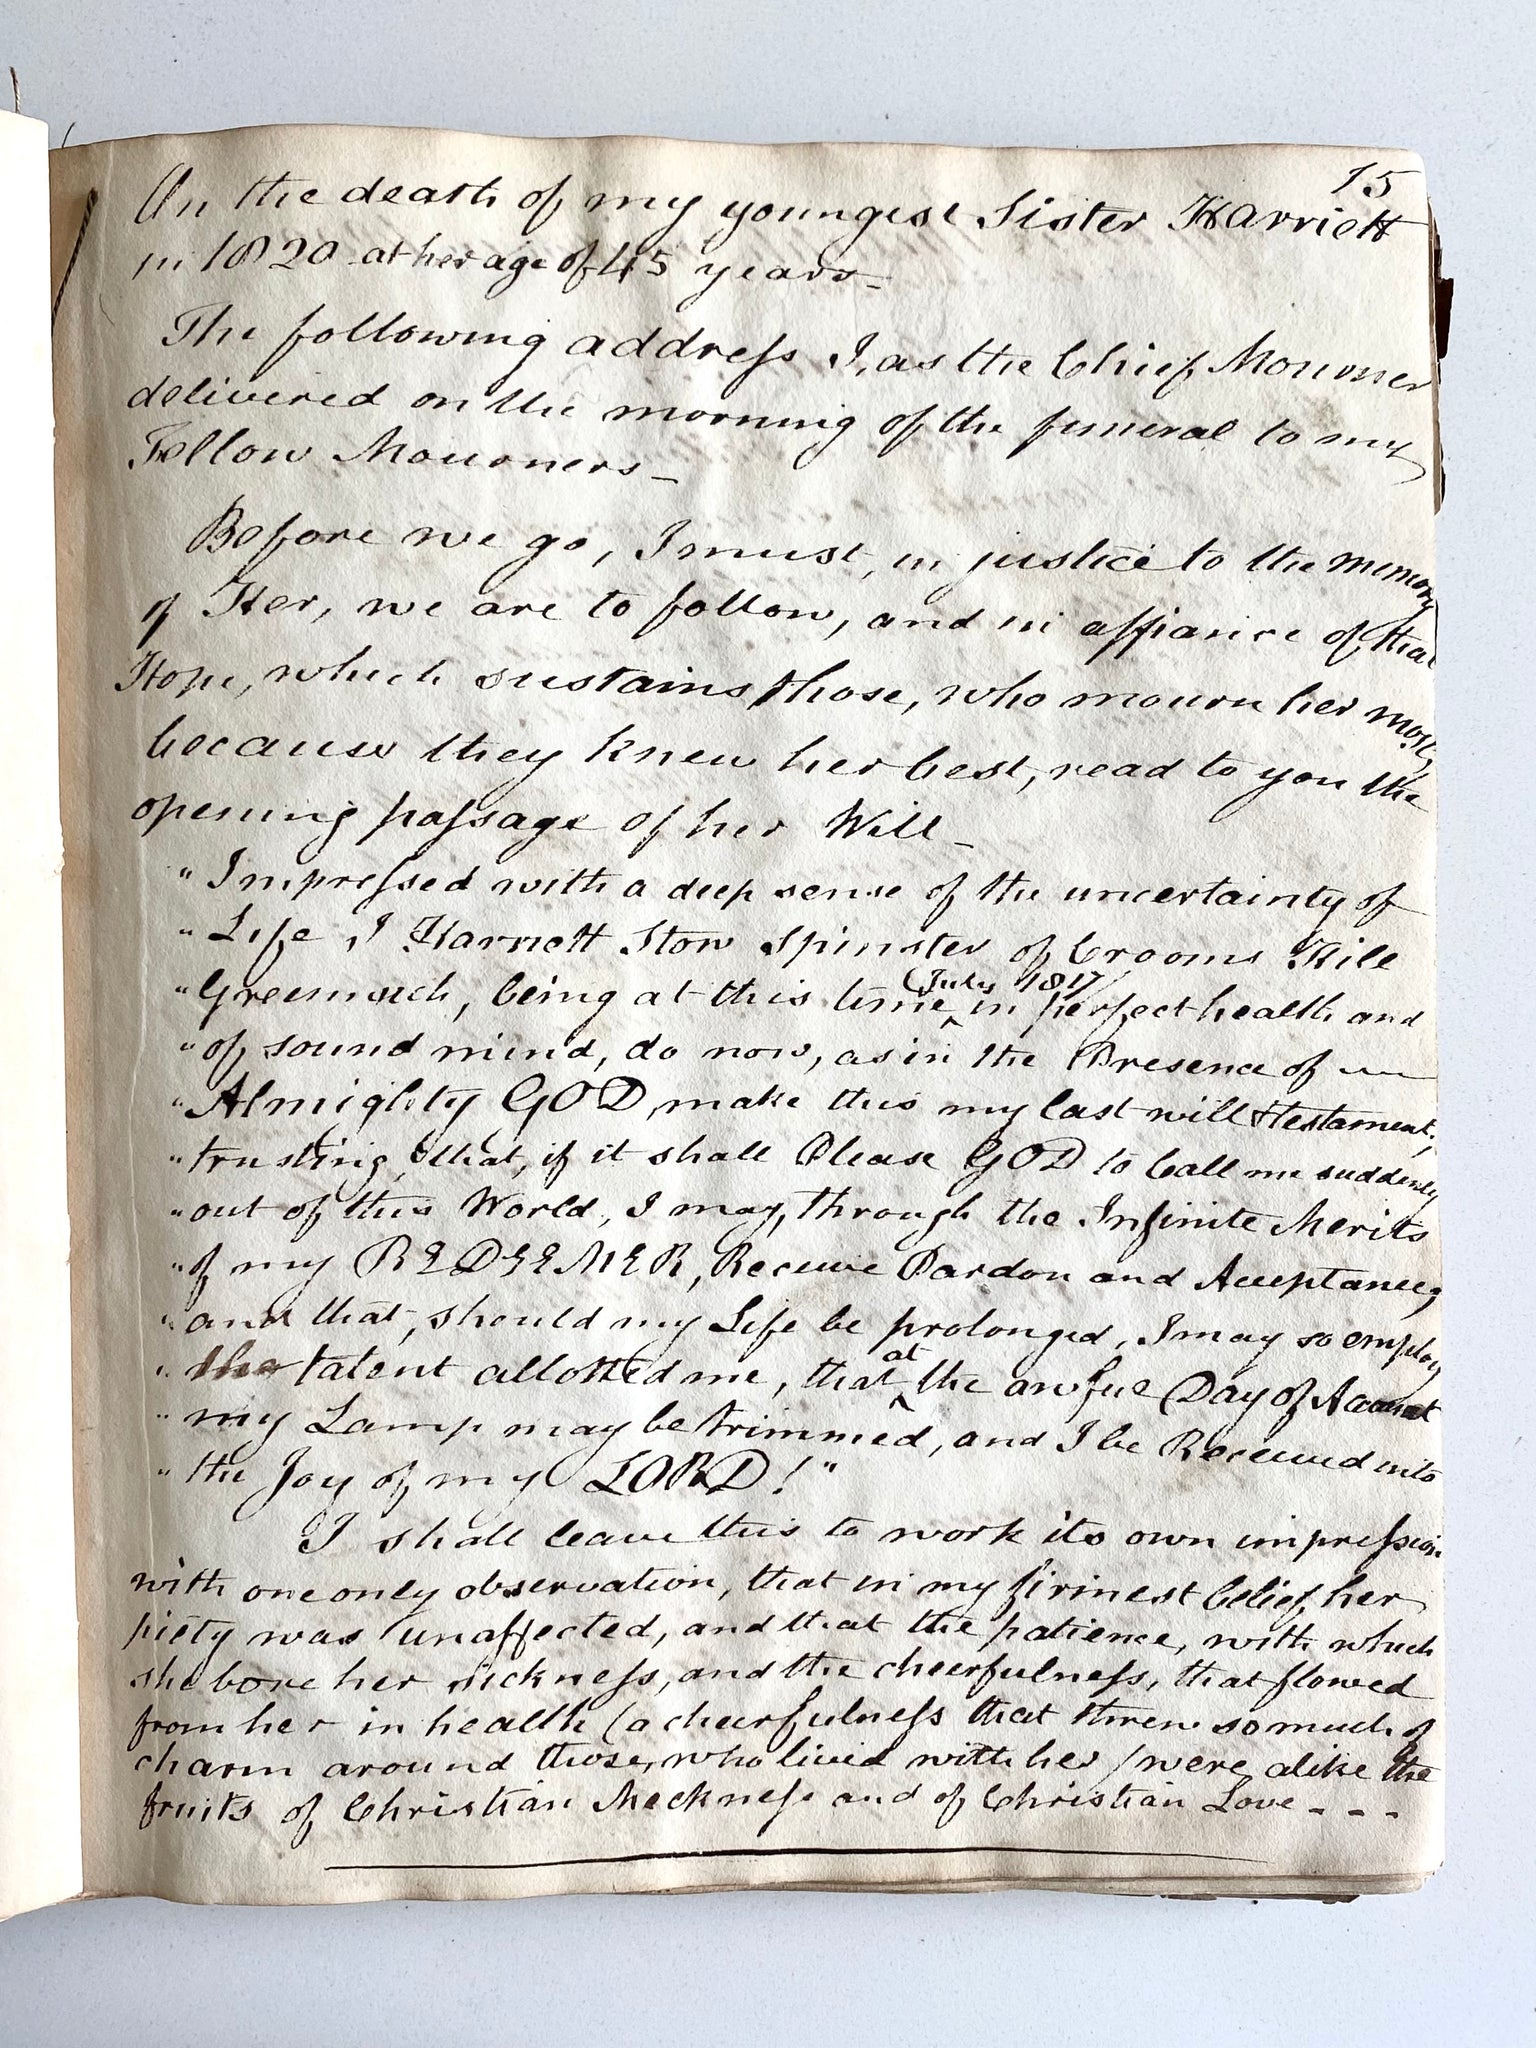 15
On the death of my youngest Sister Harriett
in 1820 at her age of 45 years -
The following addreſs I, as the Chief Mourner
delivered on the morning of the funeral to my
Fellow Mourners -
Before we go, I must, in justice to the memory
of Her, we are to follow, and in affiance of that
Hope, which sustains those, who mourn her most,
because they knew her best, read to you the
opening paſsage of her Will -
"Impreſsed with a deep sense of the uncertainty of
"Life, I Harriett Stow Spinster of Crooms Hill
"Greenwich, being at this time (July 1817) in perfect health and
"of sound mind, do now, as in the Presence of
"Almighty GOD, make this my last will & testament;
"trusting, that, if it shall Please GOD to Call me suddenly
"out of this World, I may, through the Infinite Merits
"of my REDEEMER, Receive Pardon and Acceptance;
"and that, should my Life be prolonged, I may so employ
"the talent allotted me, that at the awful Day of Account
"my Lamp may be trimmed, and I be Received into
"the Joy of my LORD!"
I shall leave this to work its own impreſsion
with one only observation, that in my firmest belief, her
piety was unaffected, and that the patience, with which
she bore her sickneſs, and the cheerfulneſs, that flowed
from her in health (a cheerfulneſs that threw so much of
charm around those, who lived with her) were alike the
fruits of Christian Meekneſs and of Christian Love - - -